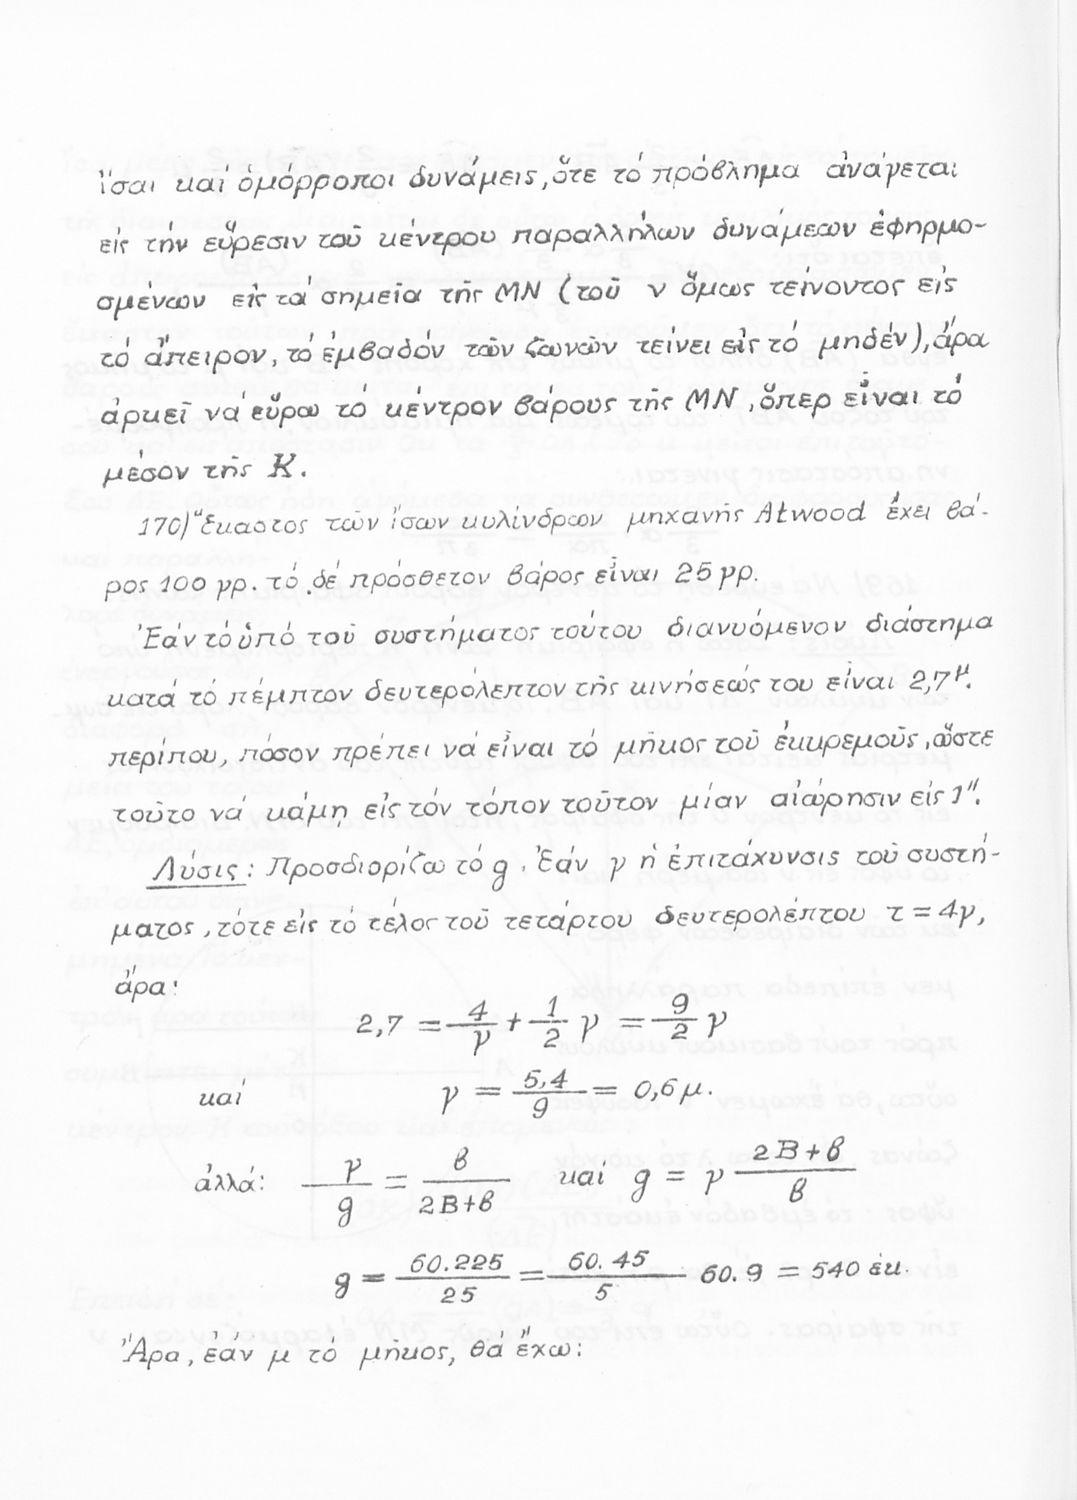 ἴσαι καί ὁμόρροποι δυνάμεις, ὅτε τό πρόβλημα ἀνάγεται
εἰς τήν εὕρεσιν τοῦ κέντρου παραλλήλων δυνάμεων ἐφηρμο-
σμένων εἰς τά σημεῖα τῆς ΜΝ (τοῦ ν ὅμως τείνοντος εἰς
τό ἄπειρον, τό ἐμβαδόν τῶν ζωνῶν τείνει εἰς τό μηδέν), ἄρα
ἀρκεῖ νά εὕρω τό κέντρον βάρους τῆς ΜΝ, ὅπερ εἶναι τό
μέσον τῆς Κ.
170) Ἕκαστος τῶν ἴσων κυλίνδρων μηχανῆς Atwood ἔχει βά-
ρος 100 γρ. τό δέ πρόσθετον βάρος εἶναι 25 γρ.
Ἐάν τό ὑπό τοῦ συστήματος τούτου διανυόμενον διάστημα
κατά τό πέμπτον δευτερόλεπτον τῆς κινήσεώς του εἶναι 2,7μ.
περίπου, πόσον πρέπει νά εἶναι τό μῆκος τοῦ ἐκκρεμοῦς, ὥστε
τοῦτο νά κάμῃ εἰς τόν τόπον τοῦτον μίαν αἰώρησιν εἰς 1".
Λύσις: Προσδιορίζω τό g. Ἐάν γ ἡ ἐπιτάχυνσις τοῦ συστή-
ματος, τότε εἰς τό τέλος τοῦ τετάρτου δευτερολέπτου τ = 4γ,
ἄρα:
2,7 = 4/γ + 1/2 γ = 9/2 γ
καί γ = 5,4/9 = 0,6 μ.
ἀλλά: γ/g = β/2Β+β καί g = γ 2Β+β/β
g = 60.225/25 = 60.45/5 60.9 = 540 ἑκ.
Ἄρα, ἐάν μ τό μῆκος, θά ἔχω: